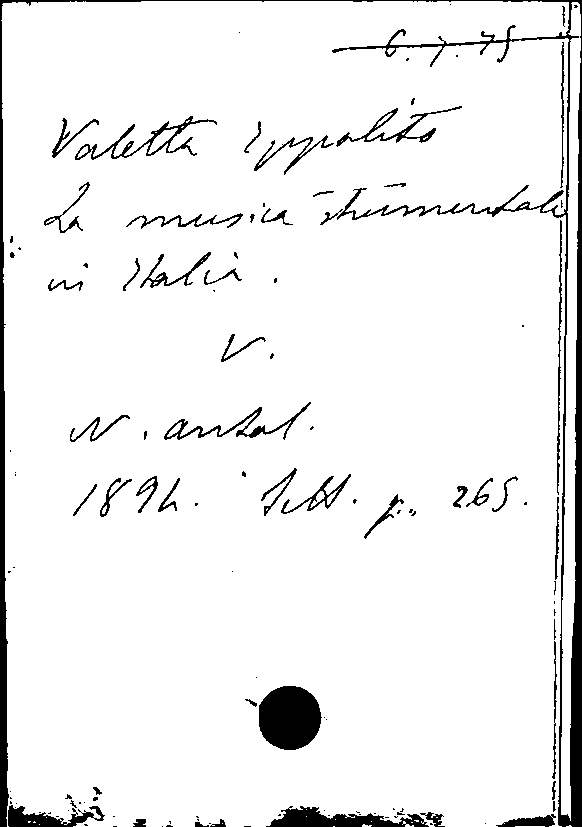 6.7.75
Valetta Ippolito
La musica strumentale
in Italia.
V.
N. antol.
1894. Sett. p. 265.